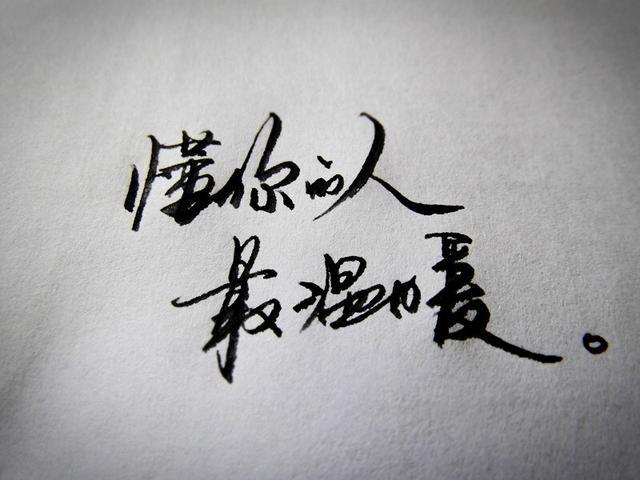 懂你的人
最温暖。